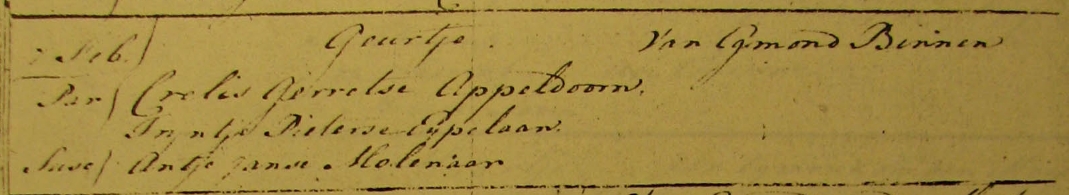 7 Feb. Geurtje. Van Egmond Binnen
Par Crelis Gerretse Appeldoorn.
Tryntje Pieterse Eypelaan.
Susc Antje Janse Molenaar